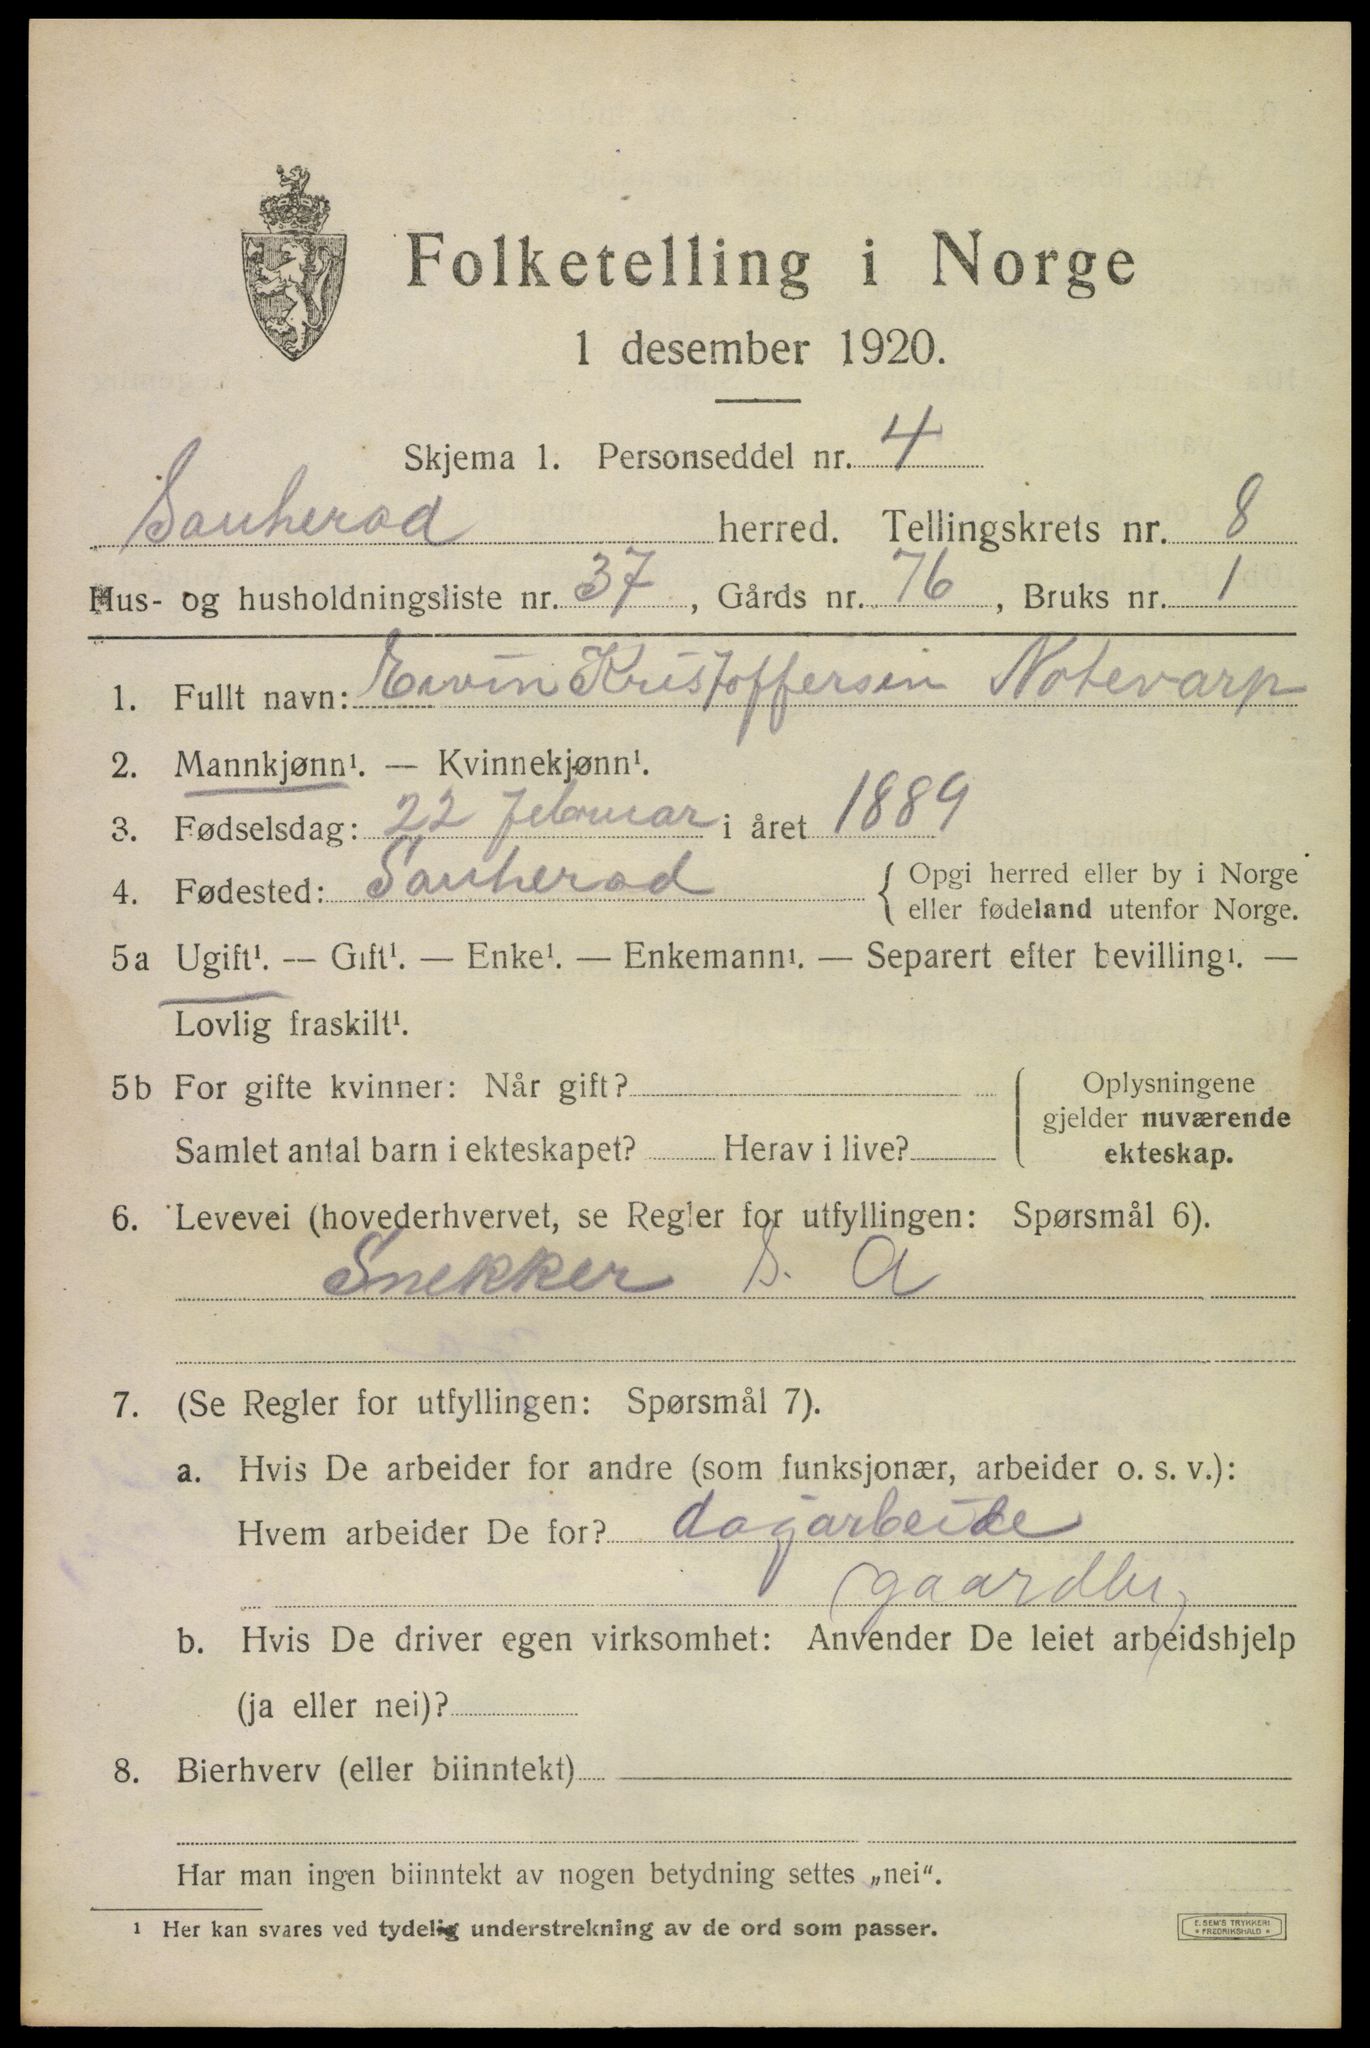 Folketelling i Norge
1 desember 1920.
Skjema 1. Personseddel nr. 4
Sauherad herred. Tellingskrets nr. 8
Hus- og husholdningsliste nr. 37, Gårds nr. 76, Bruks nr. 1
1. Fullt navn: Eivin Kristoffersen Notevarp
2. Mannkjønn¹. — Kvinnekjønn¹.
3. Fødselsdag: 22 februar i året 1889
4. Fødested: Sauherad { Opgi herred eller by i Norge
eller fødeland utenfor Norge.
5a Ugift¹. — Gift¹. — Enke¹. — Enkemann¹. — Separert efter bevilling¹. —
Lovlig fraskilt¹.
5b For gifte kvinner: Når gift?
Samlet antal barn i ekteskapet? Herav i live?
Oplysningene
gjelder nuværende
ekteskap.
6. Levevei (hovederhvervet, se Regler for utfyllingen: Spørsmål 6).
Snekker S. A
7. (Se Regler for utfyllingen: Spørsmål 7).
a. Hvis De arbeider for andre (som funksjonær, arbeider o. s. v.):
Hvem arbeider De for? dagarbeide
b. Hvis De driver egen virksomhet: Anvender De leiet arbeidshjelp
(ja eller nei)?
8. Bierhverv (eller biinntekt)
Har man ingen biinntekt av nogen betydning settes „nei".
¹ Her kan svares ved tydelig understrekning av de ord som passer.
E. SEM'S TRYKKERI
* FREDRIKSHALD *